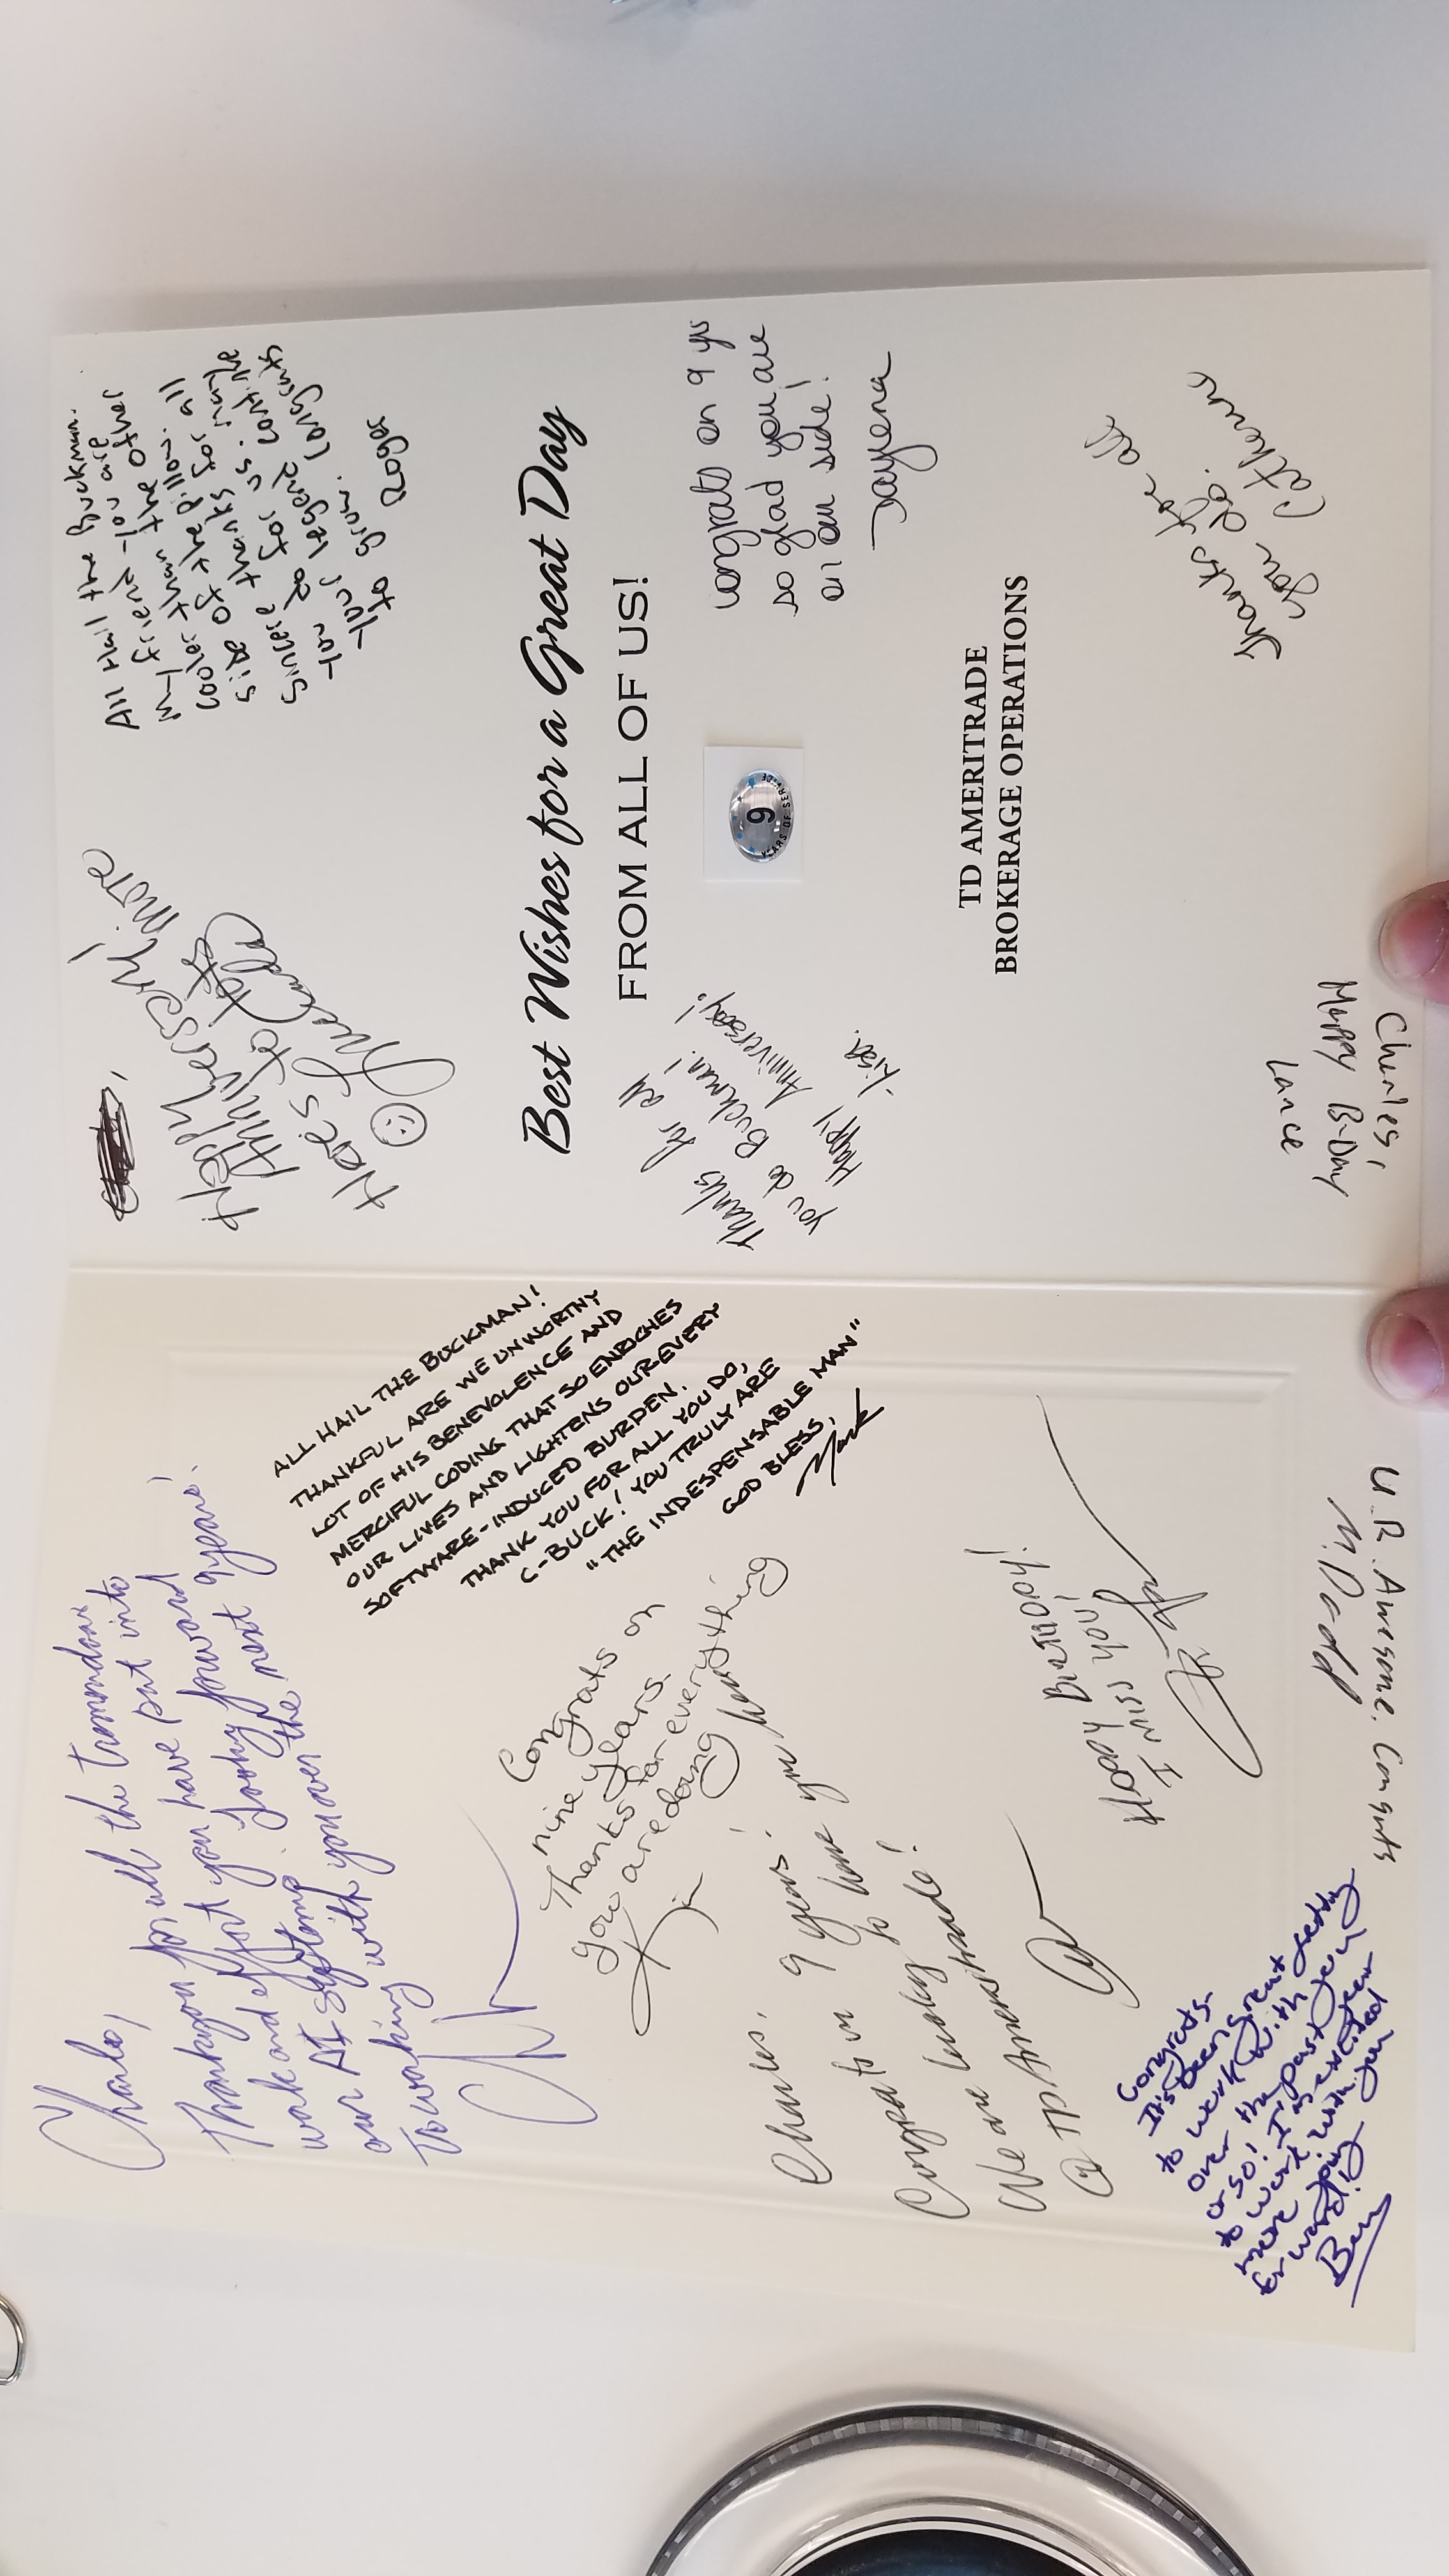 Charles,
Thankyou for all the tremendous
work and effort you have put into
our AI systems. Looking forward
to working with you over the next 9 years!
ALL HAIL THE BUCKMAN!
THANKFUL ARE WE UNWORTHY
LOT OF HIS BENEVOLENCE AND
MERCIFUL CODING THAT SO ENRICHES
OUR LIVES AND LIGHTENS OUR EVERY
SOFTWARE-INDUCED BURDEN.
THANK YOU FOR ALL YOU DO,
C-BUCK! YOU TRULY ARE
"THE INDESPENSABLE MAN"
GOD BLESS,
Mark
Congrats on
nine years.
Thanks for everything
you are doing
Jin
Charles,
Congrats on 9 years!
We are lucky to have you here
@ TD Ameritrade!
Happy BirTHDAY!
I MISS YOU!
Congrats.
It's been great getting
to work with you
over the past year
or so! I'm excited
to work with you
more going
forward!
Ben
U.R. Awesome. Congrats
M. Dodd
Happy
Anniversary!
Here's to lots more
All Hail the Buckman.
My friend you are
cooler than the other
side of the pillow. All
sincere thanks for all
you do for us. may the
your legend continue
to grow. Congrats
Roger
Best Wishes for a Great Day
FROM ALL OF US!
Thanks for all
you do Buckman!
Happy Anniversary!
-Lisa.
9
YEARS OF SERVICE
congrats on 9 yrs
so glad you are
on our side!
Dayiena
TD AMERITRADE
BROKERAGE OPERATIONS
Thanks for all
you do.
Catherine
Charles,
Happy B-Day
Lance